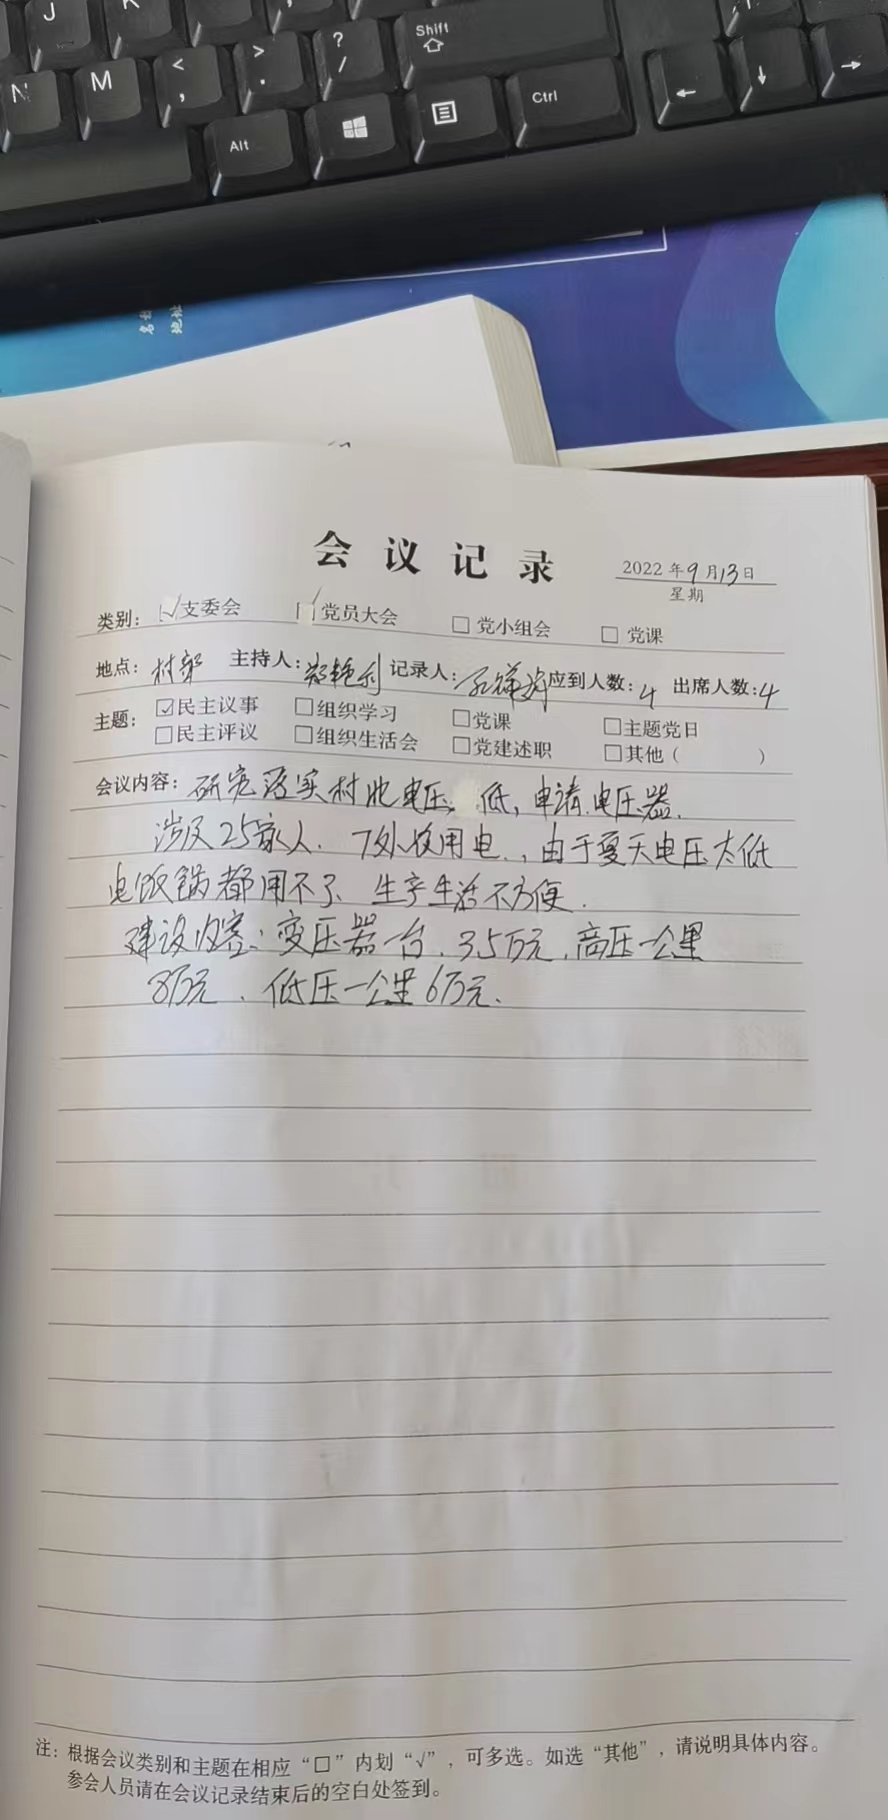 J K
Shift
N M < , > . ? /
Alt Ctrl
会议记录
2022年9月13日
星期
类别: ☑支委会 ☑党员大会 □党小组会 □党课
地点: 村部 主持人: 记录人: 应到人数: 4 出席人数: 4
主题: ☑民主议事 □组织学习 □党课 □主题党日
□民主评议 □组织生活会 □党建述职 □其他( )
会议内容: 研究落实村北电压低,申请电压器.
涉及25家人.7处 用电.,由于夏天电压太低
电饭锅都用不了、生产生活不方便.
建设内容:变压器一台.3.5万元.高压一公里
8万元.低压一公里6万元.
注: 根据会议类别和主题在相应“□”内划“√”,可多选。如选“其他”,请说明具体内容。
参会人员请在会议记录结束后的空白处签到。